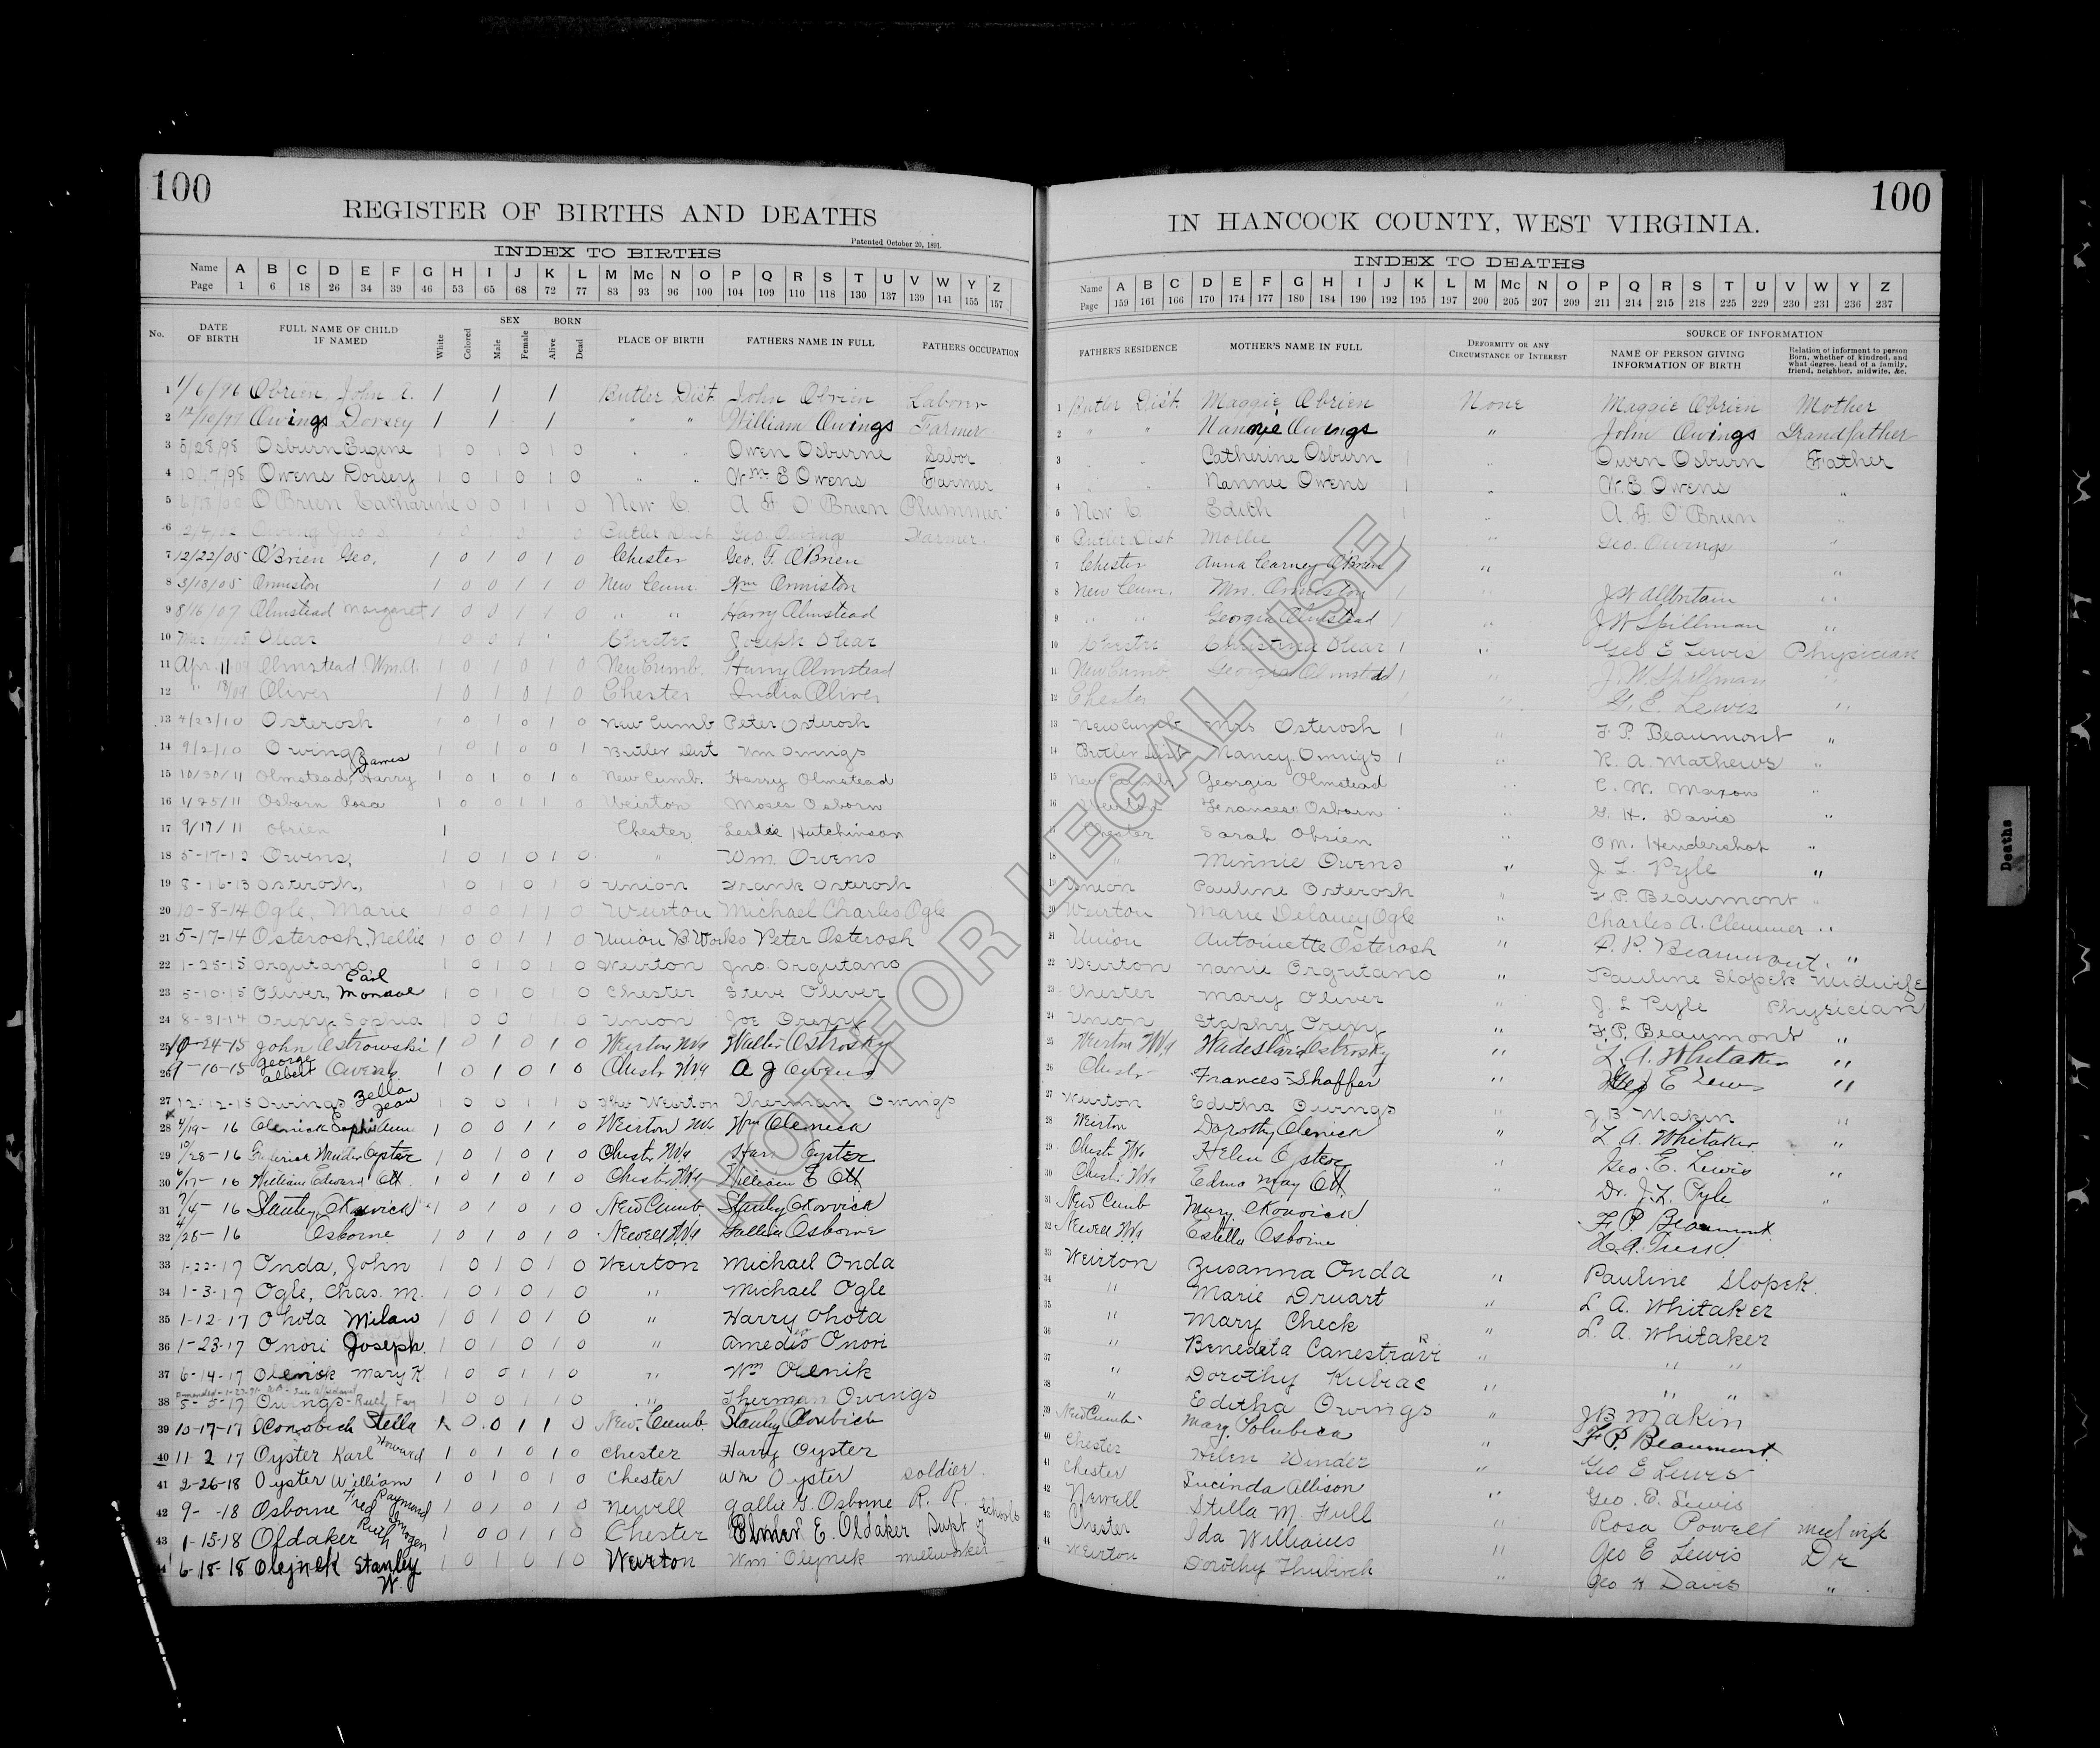 100
REGISTER OF BIRTHS AND DEATHS
Patented October 20, 1891.
INDEX TO BIRTHS
Name A B C D E F G H I J K L M Mc N O P Q R S T U V W Y Z
Page 1 6 18 26 34 39 46 53 65 68 72 77 83 93 96 100 104 109 110 118 130 137 139 141 155 157
No. DATE OF BIRTH FULL NAME OF CHILD IF NAMED White Colored SEX Male Female BORN Alive Dead PLACE OF BIRTH FATHERS NAME IN FULL FATHERS OCCUPATION
1 1/6/96 Obrien, John C. 1 1 1 Butler Dist. John Obrien Laborer
2 12/10/97 Owings Dorsey 1 1 1 " " William Owings Farmer
3 5/28/98 Osburn Eugene 1 0 1 0 1 0 " " Owen Osburne Labor
4 10/17/98 Owens Dorsey 1 0 1 0 1 0 " " Wm E Owens Farmer
5 O'Brien Catharine 0 0 1 1 0 New C. A. F. O'Brien Plummer
6 2/4/02 Owing Jno S. 1 0 0 0 Butler Dist Geo. Owings Farmer.
7 12/22/05 O'Brien Geo. 1 0 1 0 1 0 Chester Geo. F. O'Brien
8 3/13/05 Ormiston 1 0 0 1 1 0 New Cum. Wm Ormiston
9 8/16/07 Olmstead Margaret 1 0 0 1 1 0 " " Harry Olmstead
10 Olear 1 0 0 1 Chester Joseph Olear
11 Apr. 11 09 Olmstead Wm. A. 1 0 1 0 1 0 New Cumb. Harry Olmstead
12 " 18/09 Oliver 1 0 1 0 1 0 Chester India Oliver
13 4/23/10 Osterosh 1 0 1 0 1 0 New Cumb Peter Osterosh
14 9/2/10 Owings 1 0 1 0 0 1 Butler Dist Wm Owings
15 10/30/11 Olmstead, Harry James 1 0 1 0 1 0 New Cumb. Harry Olmstead
16 1/25/11 Osborn Rosa 1 0 0 1 1 0 Weirton Moses Osborn
17 9/17/11 Obrien 1 Chester Leslie Hutchinson
18 5-17-12 Owens, 1 0 1 0 1 0 " Wm. Owens
19 8-16-13 Osterosh, 1 0 1 0 1 0 Union Frank Osterosh
20 10-8-14 Ogle, Marie 1 0 0 1 1 0 Weirton Michael Charles Ogle
21 5-17-14 Osterosh, Nellie 1 0 0 1 1 0 Union B. Works Peter Osterosh
22 1-25-15 Orgutano 1 0 1 0 1 0 Weirton Jno. Orgutano
23 5-10-15 Oliver, Earl Monroe 1 0 1 0 1 0 Chester Steve Oliver
24 8-31-14 Orexy Sophia 1 0 0 1 1 0 Union Joe Orexy
25 10-24-15 John Ostrowski 1 0 1 0 1 0 Weirton W Va Walter Ostrosky
26 9-10-15 George Albert Owens 1 0 1 0 1 0 Chestr W Va A J Owens
27 12-12-15 Owings Zella Jean 1 0 0 1 1 0 Weirton Therman Owings
28 4/19-16 Olenick Sophie Ann 1 0 0 1 1 0 Weirton W Va Wm Olenick
29 10/28-16 Frederick Winder Oyster 1 0 1 0 1 0 Chestr W Va Harr Oyster
30 6/17-16 William Edward Ott 1 0 1 0 1 0 Chestr W Va William E Ott
31 7/4-16 Stanley Okovick 1 0 1 0 1 0 New Cumb Stanley Okovvick
32 4/28-16 Osborne 1 0 1 0 1 0 Newell W Va Gallie Osborne
33 1-22-17 Onda, John 1 0 1 0 1 0 Weirton Michael Onda
34 1-3-17 Ogle, Chas. M. 1 0 1 0 1 0 " Michael Ogle
35 1-12-17 Ohota Milan 1 0 1 0 1 0 " Harry Ohota
36 1-23-17 Onori Joseph. 1 0 1 0 1 0 " Amedio Onori
37 6-14-17 Olenick Mary K. 1 0 0 1 1 0 " Wm Olenik
38 5-5-17 Owings - Ruth Fay 1 0 0 1 1 0 " Therman Owings
39 10-17-17 Stella 1 0 0 1 1 0 New Cumb. Stanley
40 11 2 17 Oyster Karl Howard 1 0 1 0 1 0 Chester Harry Oyster
41 2-26-18 Oyster William 1 0 1 0 1 0 Chester Wm Oyster soldier.
42 9- -18 Osborne Fred Raymond 1 0 1 0 1 0 Newell Gallie G. Osborne R. R.
43 1-15-18 Oldaker Ruth Imogen 1 0 0 1 1 0 Chester Elmer E. Oldaker Supt of Schools
44 6-18-18 Olejnek Stanley W. 1 0 1 0 1 0 Weirton Wm Olejnik millworker
100
IN HANCOCK COUNTY, WEST VIRGINIA.
INDEX TO DEATHS
Name A B C D E F G H I J K L M Mc N O P Q R S T U V W Y Z
Page 159 161 166 170 174 177 180 184 190 192 195 197 200 205 207 209 211 214 215 218 225 229 230 231 236 237
FATHER'S RESIDENCE MOTHER'S NAME IN FULL DEFORMITY OR ANY CIRCUMSTANCE OF INTEREST SOURCE OF INFORMATION NAME OF PERSON GIVING INFORMATION OF BIRTH Relation of informent to person Born, whether of kindred, and what degree, head of a family, friend, neighbor, midwife, &c.
1 Butler Dist. Maggie Obrien None Maggie Obrien Mother
2 " " Nannie Owings " John Owings Grandfather
3 " " Catherine Osburn " Owen Osburn Father
4 " " Nannie Owens " W. E. Owens "
5 New C. Edith " A. F. O'Brien "
6 Butler Dist Mollie " Geo. Owings "
7 Chester Anna Carney O'Brien " "
8 New Cum. Mrs. Ormiston " J W Allbritain "
9 " " Georgia Olmstead " J W Spillman "
10 Chester Christina Olear " Geo E Lewis Physician
11 New Cumb. Georgia Olmstead " J. W. Spillman "
12 Chester " G. E. Lewis "
13 New Cumb Mrs Osterosh " F. P. Beaumont "
14 Butler Dist Nancy Owings " R. A. Mathews "
15 New Cumb Georgia Olmstead " C. W. Maxon "
16 Weirton Frances Osborn " G. H. Davis "
17 Chester Sarah Obrien " O M. Hendershot "
18 " Minnie Owens " J. L. Pyle "
19 Union Pauline Osterosh " F. P. Beaumont "
20 Weirton Marie Delaney Ogle " Charles A. Clemmer "
21 Union Antoinette Osterosh " F. P. Beaumont. "
22 Weirton Nanie Orgutano " Pauline Slopek Midwife
23 Chester Mary Oliver " J. L Pyle Physician
24 Union Staphy Orexy " F. P. Beaumont "
25 Weirton W Va Ostrosky " L. A. Whitaker "
26 Chestr Frances Shaffer " Geo E Lewis "
27 Weirton Editha Owings " J B Makin "
28 Weirton Dorothy Olenick " L. A. Whitaker "
29 Chestr W Va Helen Oyster " Geo. E. Lewis "
30 Chestr W Va Edna May Ott " Dr. J. L. Pyle "
31 New Cumb Mary Okovvick F. P. Beaumont
32 Newell W Va Estella Osborne
33 Weirton Zusanna Onda " Pauline Slopek.
34 " Marie Druart " L. A. Whitaker
35 " Mary Check " L. A. Whitaker
36 " Benedeta Canestrari " " "
37 " Dorothy Kubiac " " "
38 " Editha Owings " J B Makin
39 New Cumb Mary " F. P. Beaumont
40 Chester Helen Winder " Geo E Lewis
41 Chester Lucinda Allison " Geo. E. Lewis
42 Newell Stella M. Hull " Rosa Powell midwife
43 Chester Ida Williams " Geo E Lewis Dr
44 Weirton Dorothy " Geo H Davis "
NOT FOR LEGAL USE
Deaths